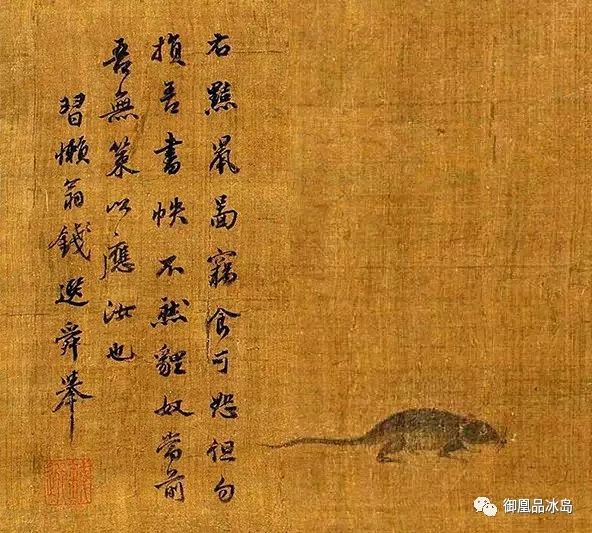 右黠鼠啚竊食可恕但勿
損吾書帙不然貍奴當前
吾無策以應汝也
習懶翁錢選舜舉
御凰品冰岛